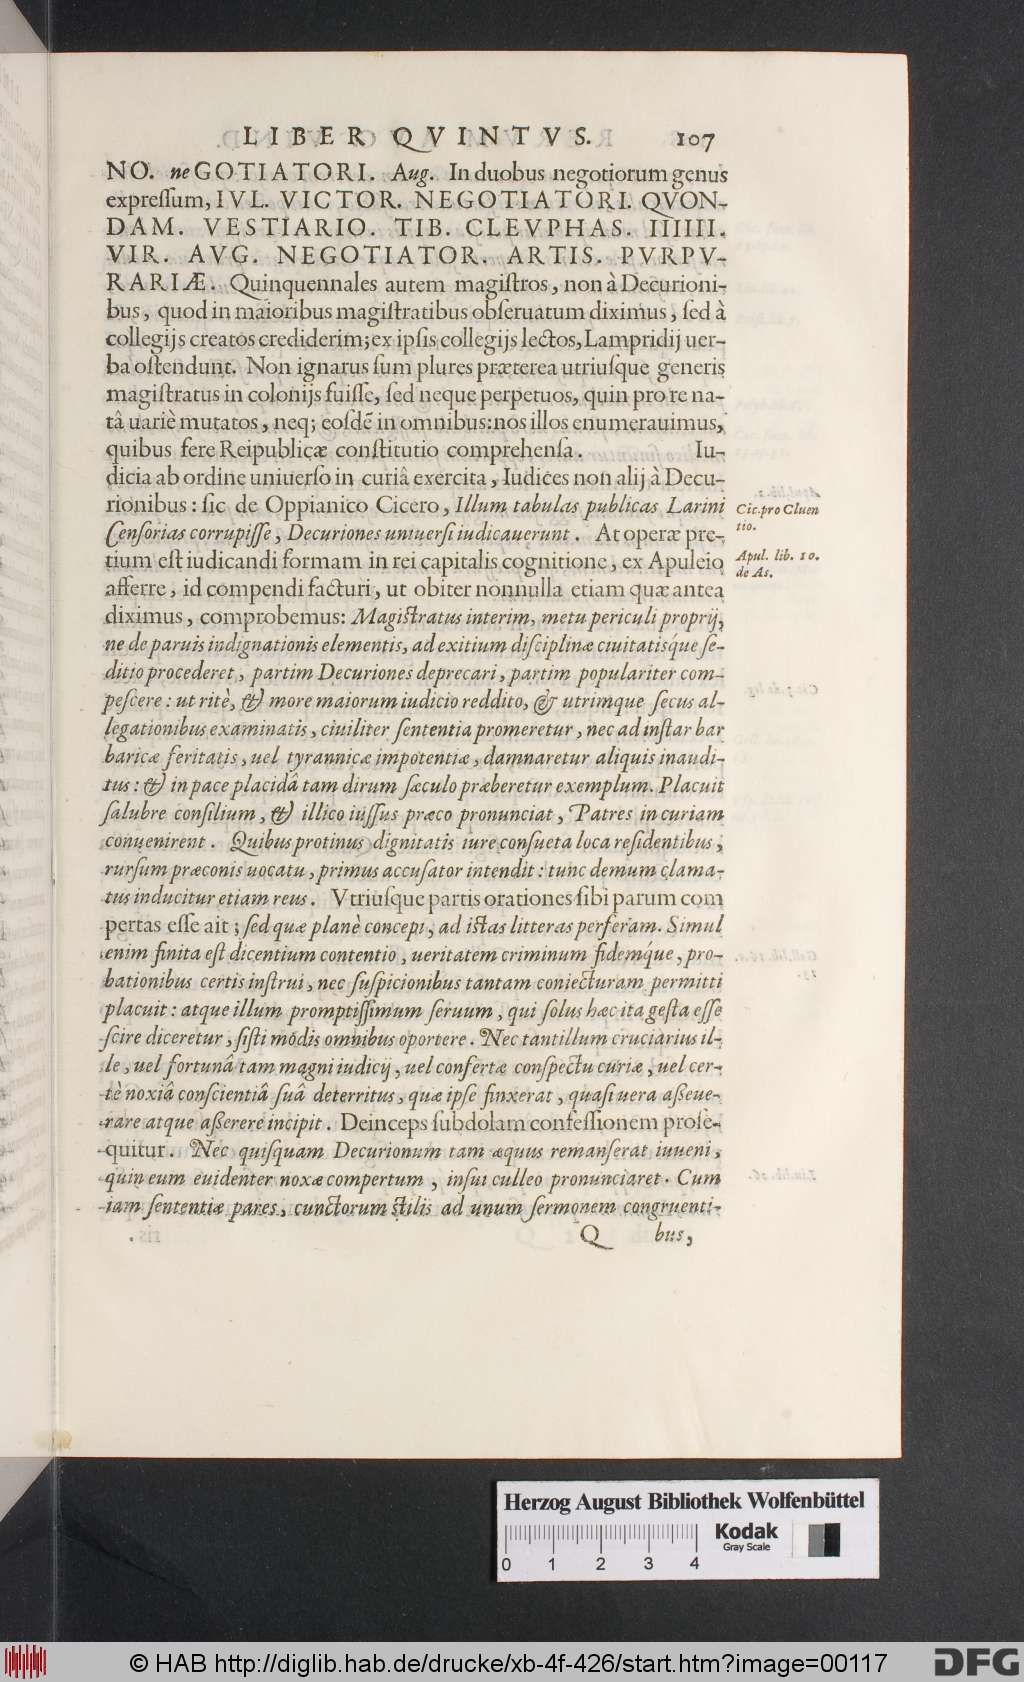 LIBER QVINTVS. 107
NO. neGOTIATORI. Aug. In duobus negotiorum genus
expreſſum, IVL. VICTOR. NEGOTIATORI. QVON-
DAM. VESTIARIO. TIB. CLEVPHAS. IIIIII.
VIR. AVG. NEGOTIATOR. ARTIS. PVRPV-
RARIÆ. Quinquennales autem magiſtros, non à Decurioni-
bus, quod in maioribus magiſtratibus obſeruatum diximus, ſed à
collegijs creatos crediderim; ex ipſis collegijs lectos, Lampridij uer-
ba oſtendunt. Non ignarus ſum plures præterea utriuſque generis
magiſtratus in colonijs fuiſſe, ſed neque perpetuos, quin pro re na-
tâ uariè mutatos, neq; eoſdē in omnibus: nos illos enumerauimus,
quibus fere Reipublicæ conſtitutio comprehenſa. Iu-
dicia ab ordine uniuerſo in curiâ exercita, Iudices non alij à Decu-
rionibus: ſic de Oppianico Cicero, Illum tabulas publicas Larini
Cenſorias corrupiſſe, Decuriones uniuerſi iudicauerunt. At operæ pre-
tium eſt iudicandi formam in rei capitalis cognitione, ex Apuleio
afferre, id compendi facturi, ut obiter nonnulla etiam quæ antea
diximus, comprobemus: Magiſtratus interim, metu periculi proprij,
ne de paruis indignationis elementis, ad exitium diſciplinæ ciuitatisq́ue ſe-
ditio procederet, partim Decuriones deprecari, partim populariter com-
peſcere: ut ritè, & more maiorum iudicio reddito, & utrimque ſecus al-
legationibus examinatis, ciuiliter ſententia promeretur, nec ad inſtar bar
baricæ feritatis, uel tyrannicæ impotentiæ, damnaretur aliquis inaudi-
tus: & in pace placidâ tam dirum ſæculo præberetur exemplum. Placuit
ſalubre conſilium, & illico iuſſus præco pronunciat, Patres in curiam
conuenirent. Quibus protinus dignitatis iure conſueta loca reſidentibus,
rurſum præconis uocatu, primus accuſator intendit: tunc demum clama-
tus inducitur etiam reus. Vtriuſque partis orationes ſibi parum com
pertas eſſe ait; ſed quæ planè concepi, ad iſtas litteras perferam. Simul
enim finita eſt dicentium contentio, ueritatem criminum fidemq́ue, pro-
bationibus certis inſtrui, nec ſuſpicionibus tantam coniecturam permitti
placuit: atque illum promptiſſimum ſeruum, qui ſolus hæc ita geſta eſſe
ſcire diceretur, ſiſti modis omnibus oportere. Nec tantillum cruciarius il-
le, uel fortunâ tam magni iudicij, uel confertæ conſpectu curiæ, uel cer-
tè noxiâ conſcientiâ ſuâ deterritus, quæ ipſe finxerat, quaſi uera aßeue-
rare atque aßerere incipit. Deinceps ſubdolam confeſſionem proſe-
quitur. Nec quiſquam Decurionum tam æquus remanſerat iuueni,
quin eum euidenter noxæ compertum, inſui culleo pronunciaret. Cum
iam ſententiæ pares, cunctorum ſtilis ad unum ſermonem congruenti-
Q bus,
Cic. pro Cluen
tio.
Apul. lib. 10.
de As.
Herzog August Bibliothek Wolfenbüttel
0 1 2 3 4
Kodak
Gray Scale
© HAB http://diglib.hab.de/drucke/xb-4f-426/start.htm?image=00117
DFG